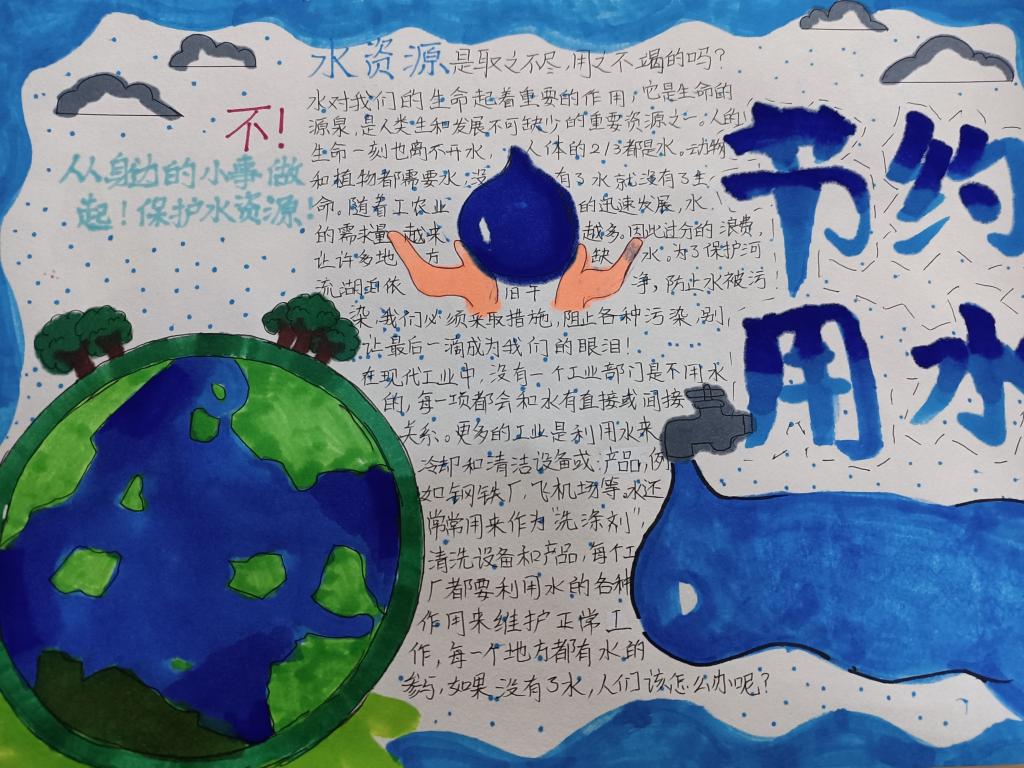 水资源是取之不尽,用之不竭的吗?
不!
从身边的小事做
起!保护水资源!
节约
用水
水对我们的生命起着重要的作用,它是生命的
源泉,是人类生和发展不可缺少的重要资源之一。人的
生命一刻也离不开水,人体的2/3都是水。动物
和植物都需要水,没有了水就没有了生
命。随着工农业的迅速发展,水
的需求量越来越多。因此过分的浪费,
让许多地方缺水。为了保护河
流湖泊依旧干净,防止水被污
染,我们必须采取措施,阻止各种污染,别
让最后一滴成为我们的眼泪!
在现代工业中,没有一个工业部门是不用水
的,每一项都会和水有直接或间接
关系。更多的工业是利用水来
冷却和清洁设备或产品,例
如钢铁厂,飞机场等。水还
常常用来作为“洗涤剂”,
清洗设备和产品,每个工
厂都要利用水的各种
作用来维护正常工
作,每一个地方都有水的
参与,如果没有了水,人们该怎么办呢?